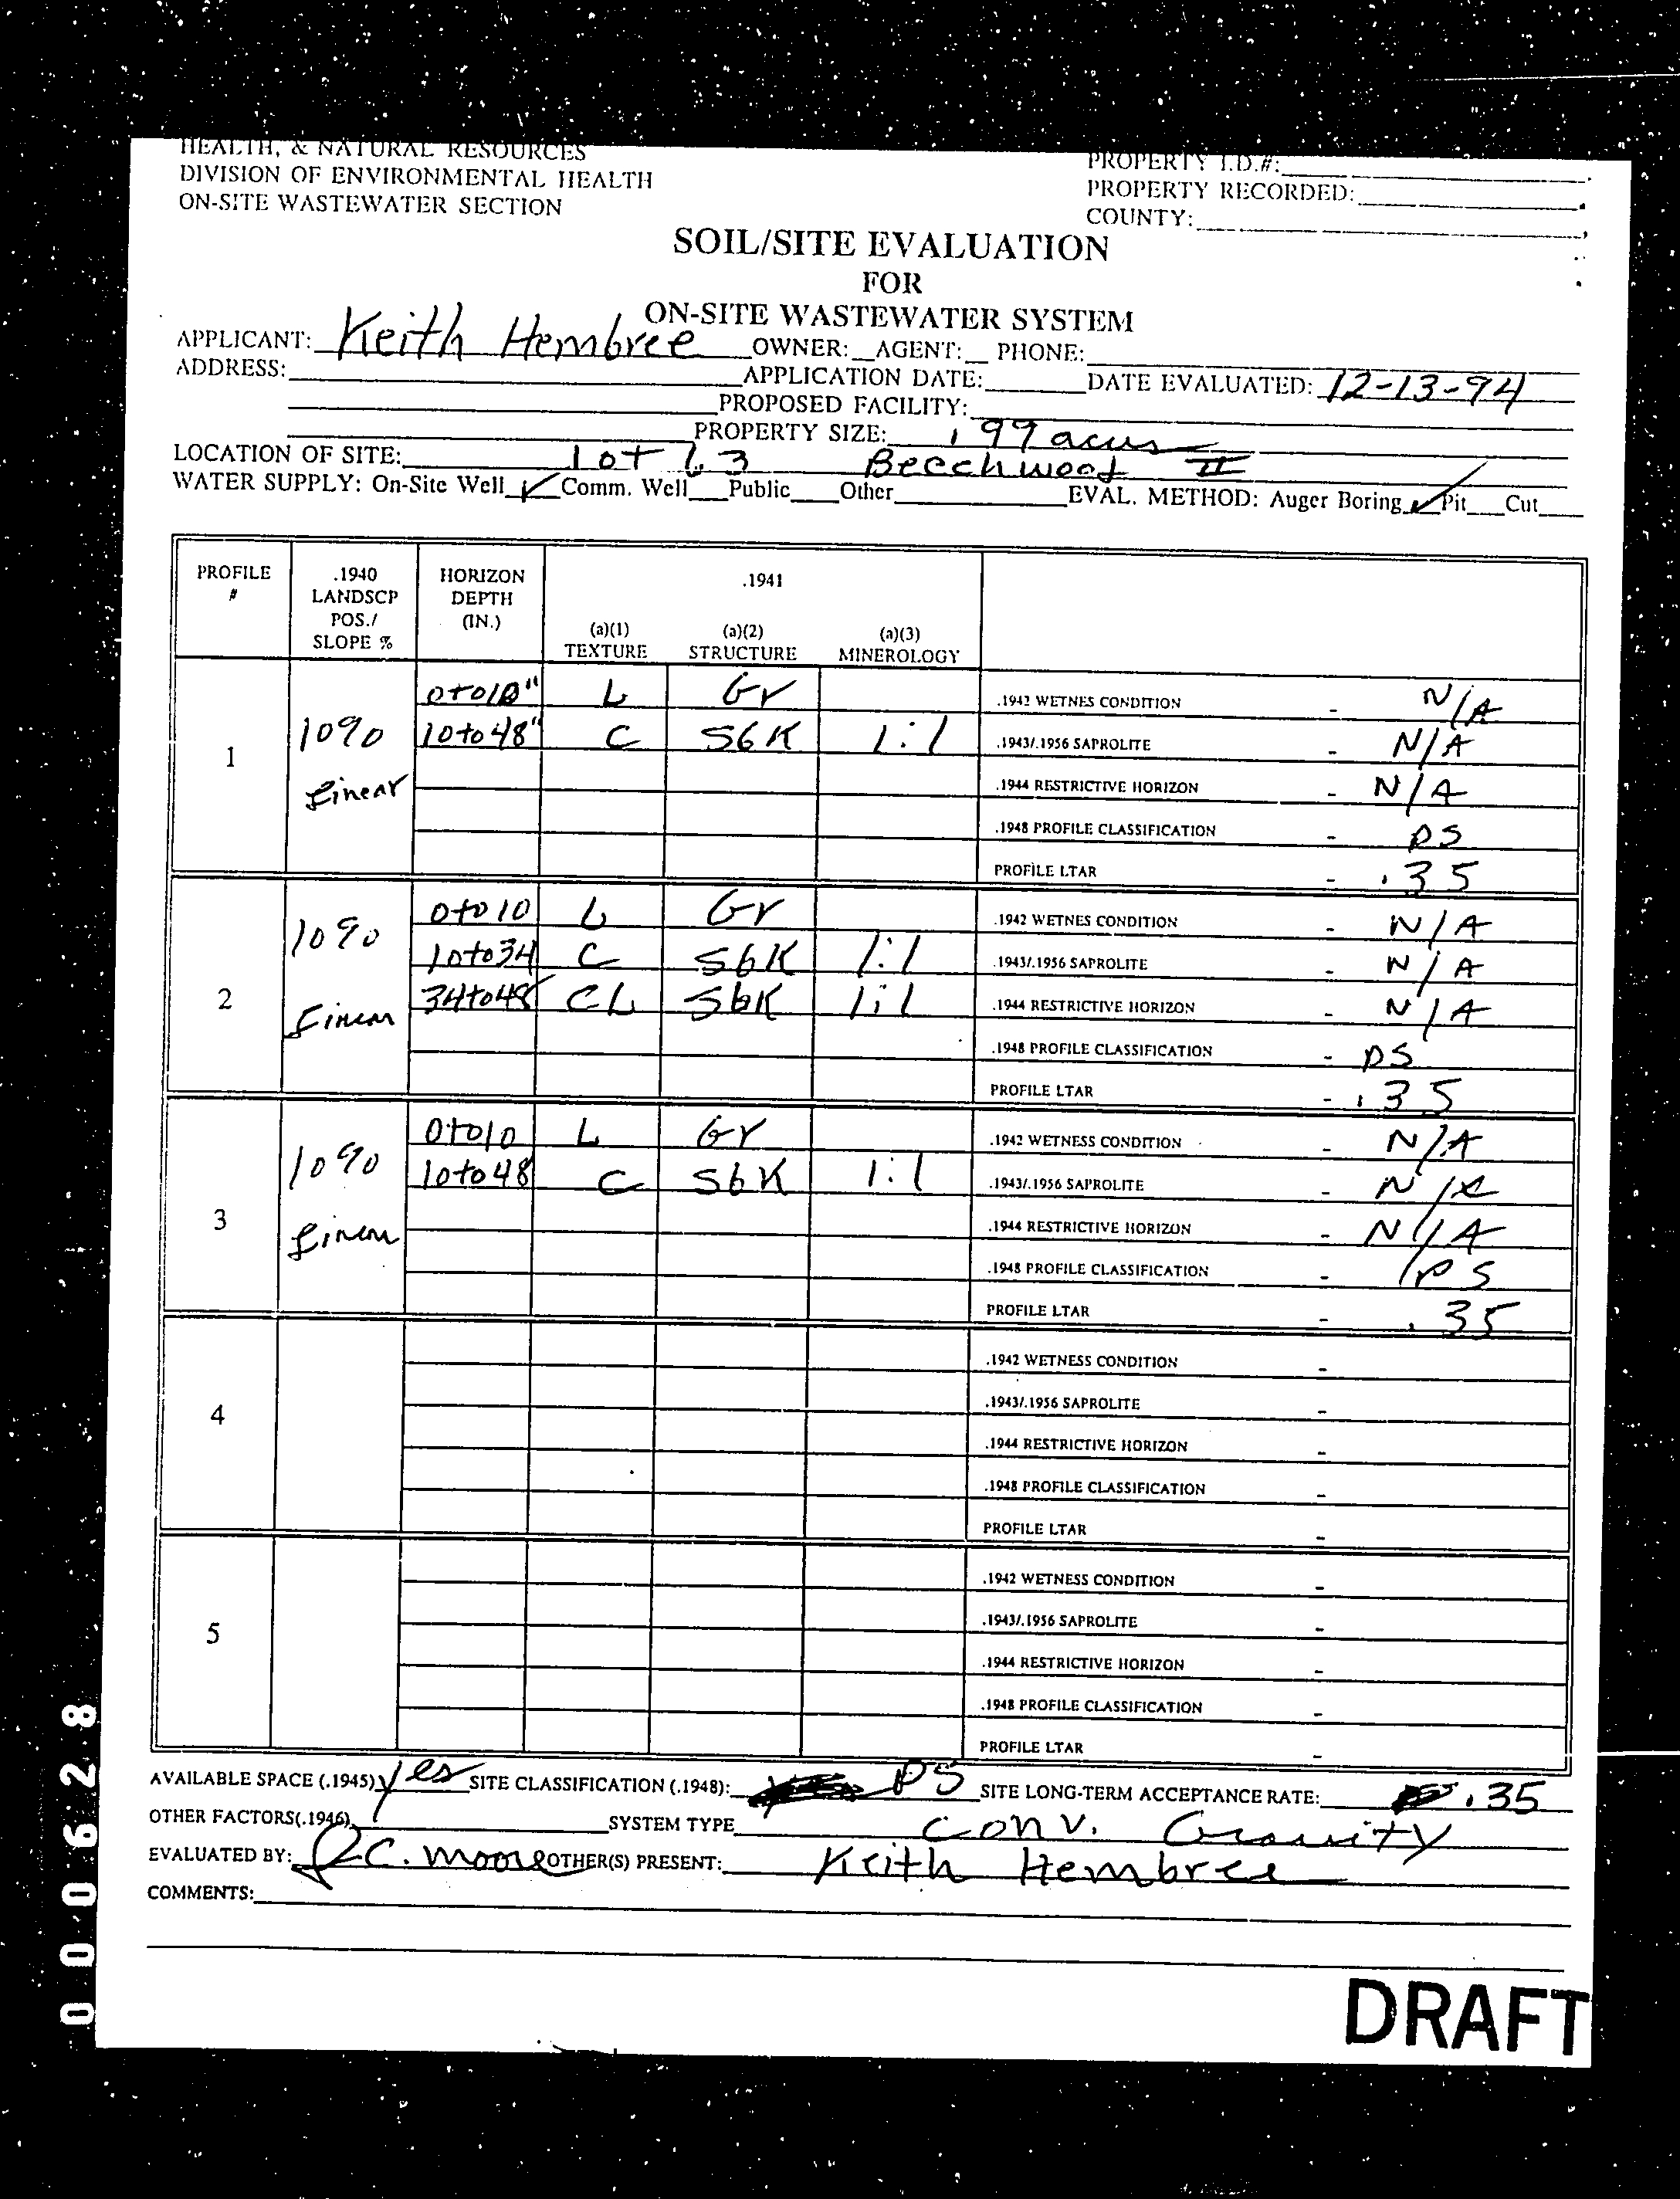 HEALTH, & NATURAL RESOURCES
DIVISION OF ENVIRONMENTAL HEALTH
ON-SITE WASTEWATER SECTION
PROPERTY I.D.#:
PROPERTY RECORDED:
COUNTY:
SOIL/SITE EVALUATION
FOR
ON-SITE WASTEWATER SYSTEM
APPLICANT: Keith Hembree OWNER: AGENT: PHONE:
ADDRESS: APPLICATION DATE: DATE EVALUATED: 12-13-94
PROPOSED FACILITY:
PROPERTY SIZE: .99 acres
LOCATION OF SITE: Lot 63 Beechwood II
WATER SUPPLY: On-Site Well ✓ Comm. Well Public Other EVAL. METHOD: Auger Boring ✓ Pit Cut
PROFILE # .1940 LANDSCP POS./ SLOPE % HORIZON DEPTH (IN.) .1941
(a)(1) TEXTURE (a)(2) STRUCTURE (a)(3) MINEROLOGY
1 10% Linear
0to10" L Gr .1942 WETNES CONDITION - N/A
10to48" C SBK 1:1 .1943/.1956 SAPROLITE - N/A
.1944 RESTRICTIVE HORIZON - N/A
.1948 PROFILE CLASSIFICATION - PS
PROFILE LTAR - .35
2 10% Linear
0to10 L Gr .1942 WETNES CONDITION - N/A
10to34 C SbK 1:1 .1943/.1956 SAPROLITE - N/A
34to48 CL SbK 1:1 .1944 RESTRICTIVE HORIZON - N/A
.1948 PROFILE CLASSIFICATION - PS
PROFILE LTAR - .35
3 10% Linear
0to10 L Gr .1942 WETNESS CONDITION - N/A
10to48 C SbK 1:1 .1943/.1956 SAPROLITE - N/A
.1944 RESTRICTIVE HORIZON - N/A
.1948 PROFILE CLASSIFICATION - PS
PROFILE LTAR - .35
4
.1942 WETNESS CONDITION -
.1943/.1956 SAPROLITE -
.1944 RESTRICTIVE HORIZON -
.1948 PROFILE CLASSIFICATION -
PROFILE LTAR -
5
.1942 WETNESS CONDITION -
.1943/.1956 SAPROLITE -
.1944 RESTRICTIVE HORIZON -
.1948 PROFILE CLASSIFICATION -
PROFILE LTAR -
AVAILABLE SPACE (.1945) yes SITE CLASSIFICATION (.1948): PS SITE LONG-TERM ACCEPTANCE RATE: .35
OTHER FACTORS(.1946) SYSTEM TYPE Conv. Gravity
EVALUATED BY: R.C. Moore OTHER(S) PRESENT: Keith Hembree
COMMENTS:
DRAFT
0006628